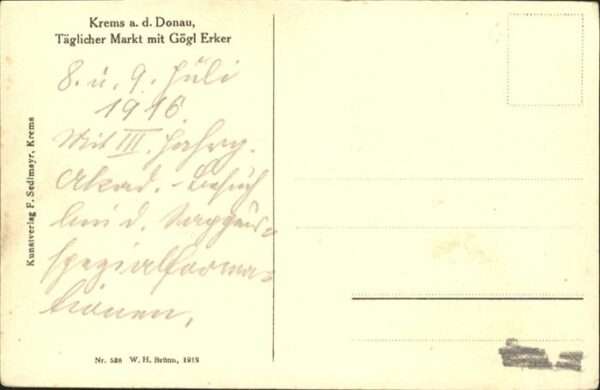 Krems a. d. Donau,
Täglicher Markt mit Gögl Erker
8. u. 9. Juli
1916
Mit III. Jahrg.
Akad. - Besuch
bei d. Sappeur=
spezialforma=
tionen.
Kunstverlag F. Sedlmayr, Krems
Nr. 526 W. H. Brünn, 1915